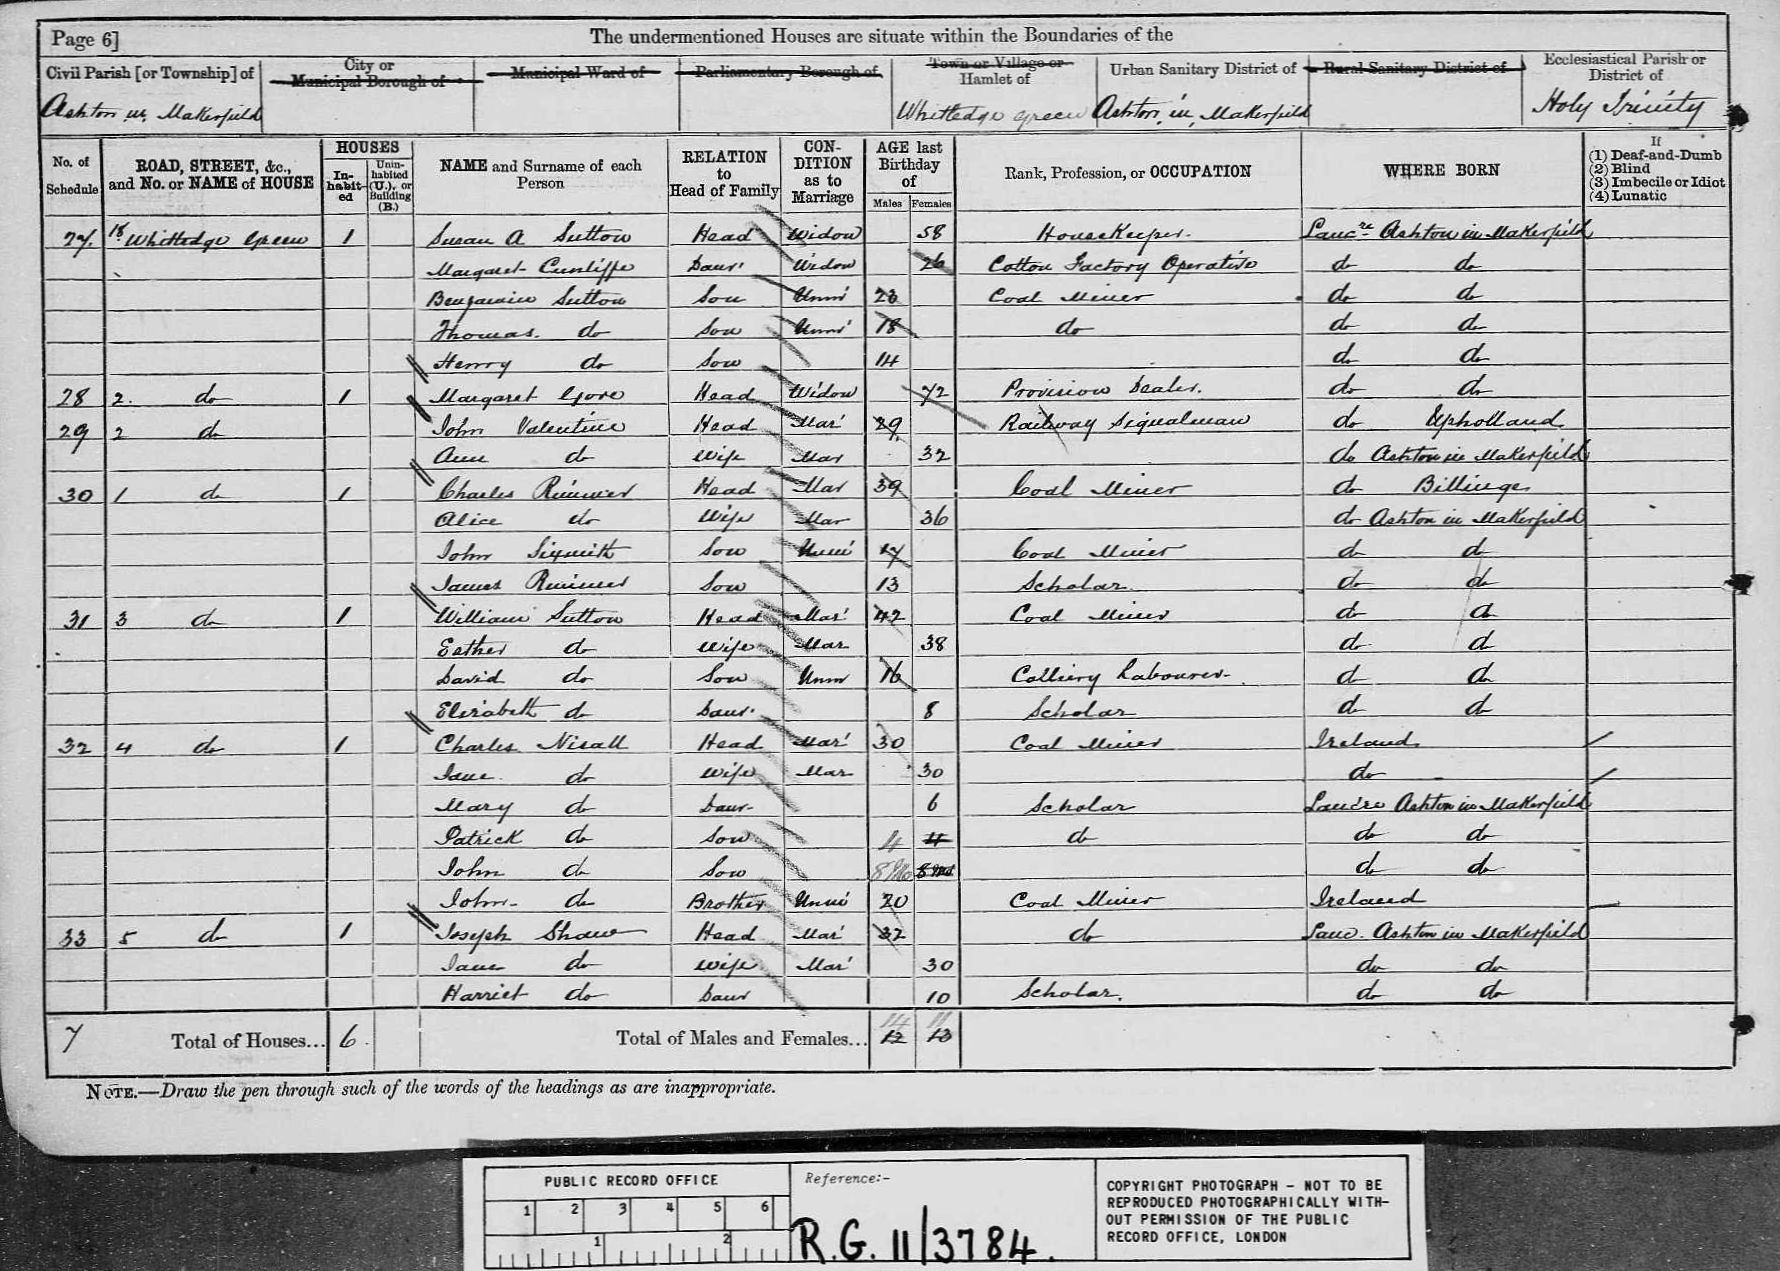 Page 6]
The undermentioned Houses are situate within the Boundaries of the
Civil Parish [or Township] of
City or Municipal Borough of
Municipal Ward of
Parliamentary Borough of
Town or Village or Hamlet of
Urban Sanitary District of
Rural Sanitary District of
Ecclesiastical Parish or District of
Ashton in Makerfield
Whitledge Green
Ashton in Makerfield
Holy Trinity
No. of Schedule
ROAD, STREET, &c., and No. or NAME of HOUSE
HOUSES
In-habit-ed
Unin-habited (U.), or Building (B.)
NAME and Surname of each Person
RELATION to Head of Family
CON-DITION as to Marriage
AGE last Birthday of
Males
Females
Rank, Profession, or OCCUPATION
WHERE BORN
If
(1) Deaf-and-Dumb
(2) Blind
(3) Imbecile or Idiot
(4) Lunatic
27 18 Whitledge Green 1 Susan A Sutton Head Widow 58 Housekeeper Lancre Ashton in Makerfield
Margaret Cunliffe Daur Widow 26 Cotton Factory Operative do do
Benjamin Sutton Son Unm 23 Coal Miner do do
Thomas do Son Unm 18 do do do
Henry do Son 14 do do
28 2 do 1 Margaret Gore Head Widow 72 Provision Dealer do do
29 2 do John Valentine Head Mar 29 Railway Signalman do Upholland
Ann do Wife Mar 32 do Ashton in Makerfield
30 1 do 1 Charles Rimmer Head Mar 39 Coal Miner do Billinge
Alice do Wife Mar 36 do Ashton in Makerfield
John Sixsmith Son Unm 17 Coal Miner do do
James Rimmer Son 13 Scholar do do
31 3 do 1 William Sutton Head Mar 42 Coal Miner do do
Esther do Wife Mar 38 do do
David do Son Unm 16 Colliery Labourer do do
Elizabeth do Daur 8 Scholar do do
32 4 do 1 Charles Nisall Head Mar 30 Coal Miner Ireland
Jane do Wife Mar 30 do
Mary do Daur 6 Scholar Lancre Ashton in Makerfield
Patrick do Son 4 4 do do do
John do Son 8 Mo 8 Mo do do
John do Brother Unm 20 Coal Miner Ireland
33 5 do 1 Joseph Shaw Head Mar 32 do Lanc. Ashton in Makerfield
Jane do Wife Mar 30 do do
Harriet do Daur 10 Scholar do do
7 Total of Houses... 6 Total of Males and Females... 14 11
12 13
NOTE.—Draw the pen through such of the words of the headings as are inappropriate.
PUBLIC RECORD OFFICE
1 2 3 4 5 6
1 2
Reference:-
R.G. 11/3784.
COPYRIGHT PHOTOGRAPH - NOT TO BE
REPRODUCED PHOTOGRAPHICALLY WITH-
OUT PERMISSION OF THE PUBLIC
RECORD OFFICE, LONDON